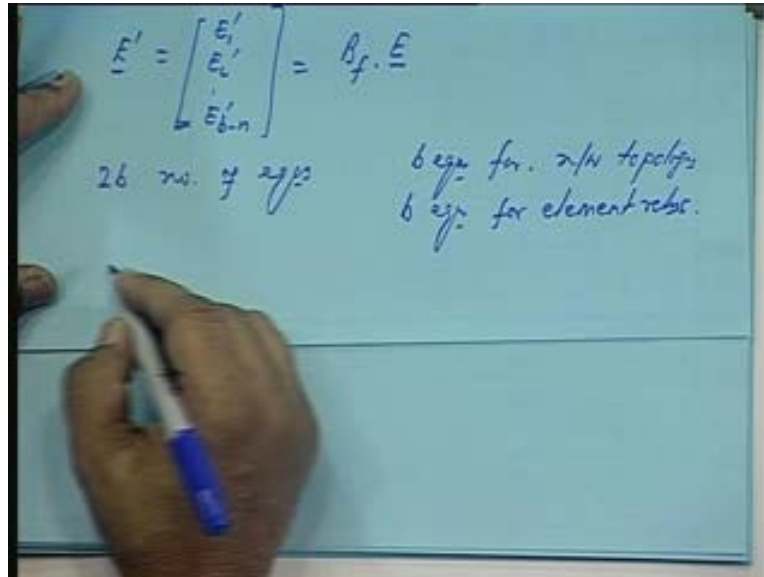 E' = [ E₁'
E₂'
⋮
E'b-n ] = B_f . E
2b no. of eqns
b eqns for. n/w topology
b eqn for element relns.